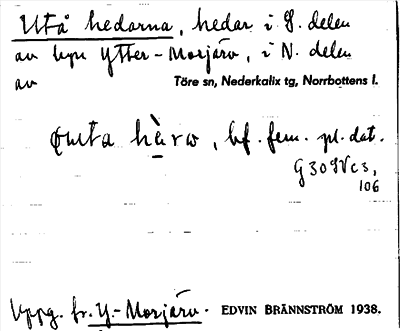 Utå hedarna, hedar i S. delen
av byn Ytter-Morjärv, i N. delen
av Töre sn, Nederkalix tg, Norrbottens l.
hæ̀rω, bf. fem. pl. dat.
106
Uppg. fr. Y.-Morjärv. EDVIN BRÄNNSTRÖM 1938.